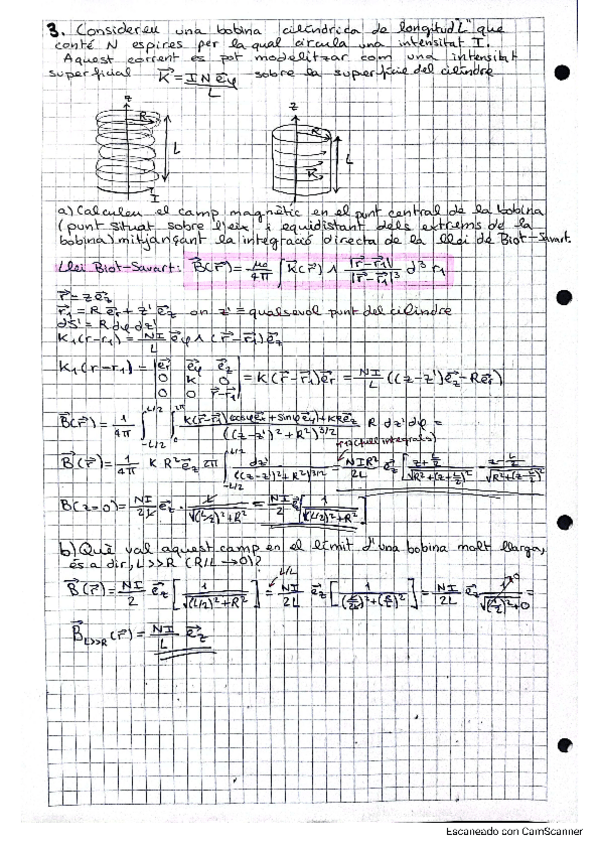 3. Considereu una bobina cilíndrica de longitud "L" que
conté N espires per la qual circula una intensitat I.
Aquest corrent es pot modelitzar com una intensitat
superficial K⃗ = I N e⃗φ / L sobre la superfície del cilindre
z z
R R
L L
K⃗
I
a) Calculeu el camp magnètic en el punt central de la bobina
(punt situat sobre l'eix i equidistant dels extrems de la
bobina) mitjançant la integració directa de la llei de Biot-Savart.
Llei Biot-Savart: B⃗(r⃗) = μ₀/4π ∫ K⃗(r⃗) ∧ |r⃗-r⃗₁| / |r⃗-r⃗₁|³ d³r₁
r⃗ = z e⃗z
r⃗₁ = R e⃗r + z' e⃗z on z' = qualsevol punt del cilindre
dS' = R dφ dz'
K₁(r-r₁) = NI/L e⃗φ ∧ (r⃗-r⃗₁) e⃗z
K₁(r-r₁) = | e⃗r e⃗φ e⃗z ; 0 K 0 ; 0 0 r⃗-r⃗₁ | = K(r⃗-r⃗₁) e⃗r = NI/L ((z-z') e⃗z - R e⃗r)
B⃗(r⃗) = 1/4π ∫_{-L/2}^{L/2} ∫_0^{2π} K(r⃗-r⃗₁)(cosφ e⃗r + sinφ e⃗y) + KR e⃗z / ((z-z')²+R²)^{3/2} R dz' dφ =
B⃗(r⃗) = 1/4π K R² e⃗z 2π ∫_{-L/2}^{L/2} dz' / ((z-z')²+R²)^{3/2} = NIR²/2L e⃗z [ z+L/2 / √(R²+(z+L/2)²) - z-L/2 / √(R²+(z-L/2)²) ]
B(z=0) = NI/2L e⃗z · L / √((L/2)²+R²) = NI/2 e⃗z [ 1 / √((L/2)²+R²) ]
b) Què val aquest camp en el límit d'una bobina molt llarga,
és a dir, L>>R (R/L → 0)?
B⃗(r⃗) = NI/2 e⃗z [ 1 / √((L/2)²+R²) ] = L/L NI/2L e⃗z [ 1 / √((L/2L)²+(R/L)²) ] = NI/2L e⃗z 1 / √((1/2)²+0) =
B⃗_{L>>R}(r⃗) = NI/L e⃗z
Escaneado con CamScanner